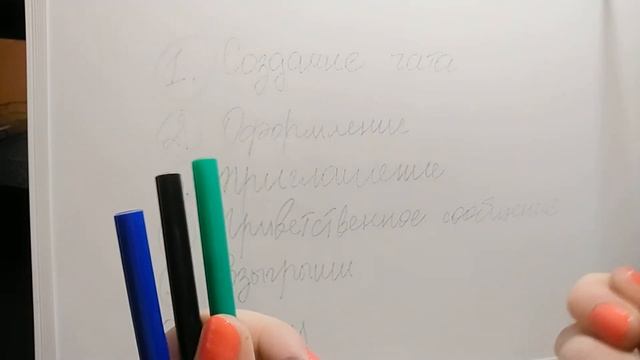 1. Создание чата
2. Оформление
приглашение
приветственное сообщение